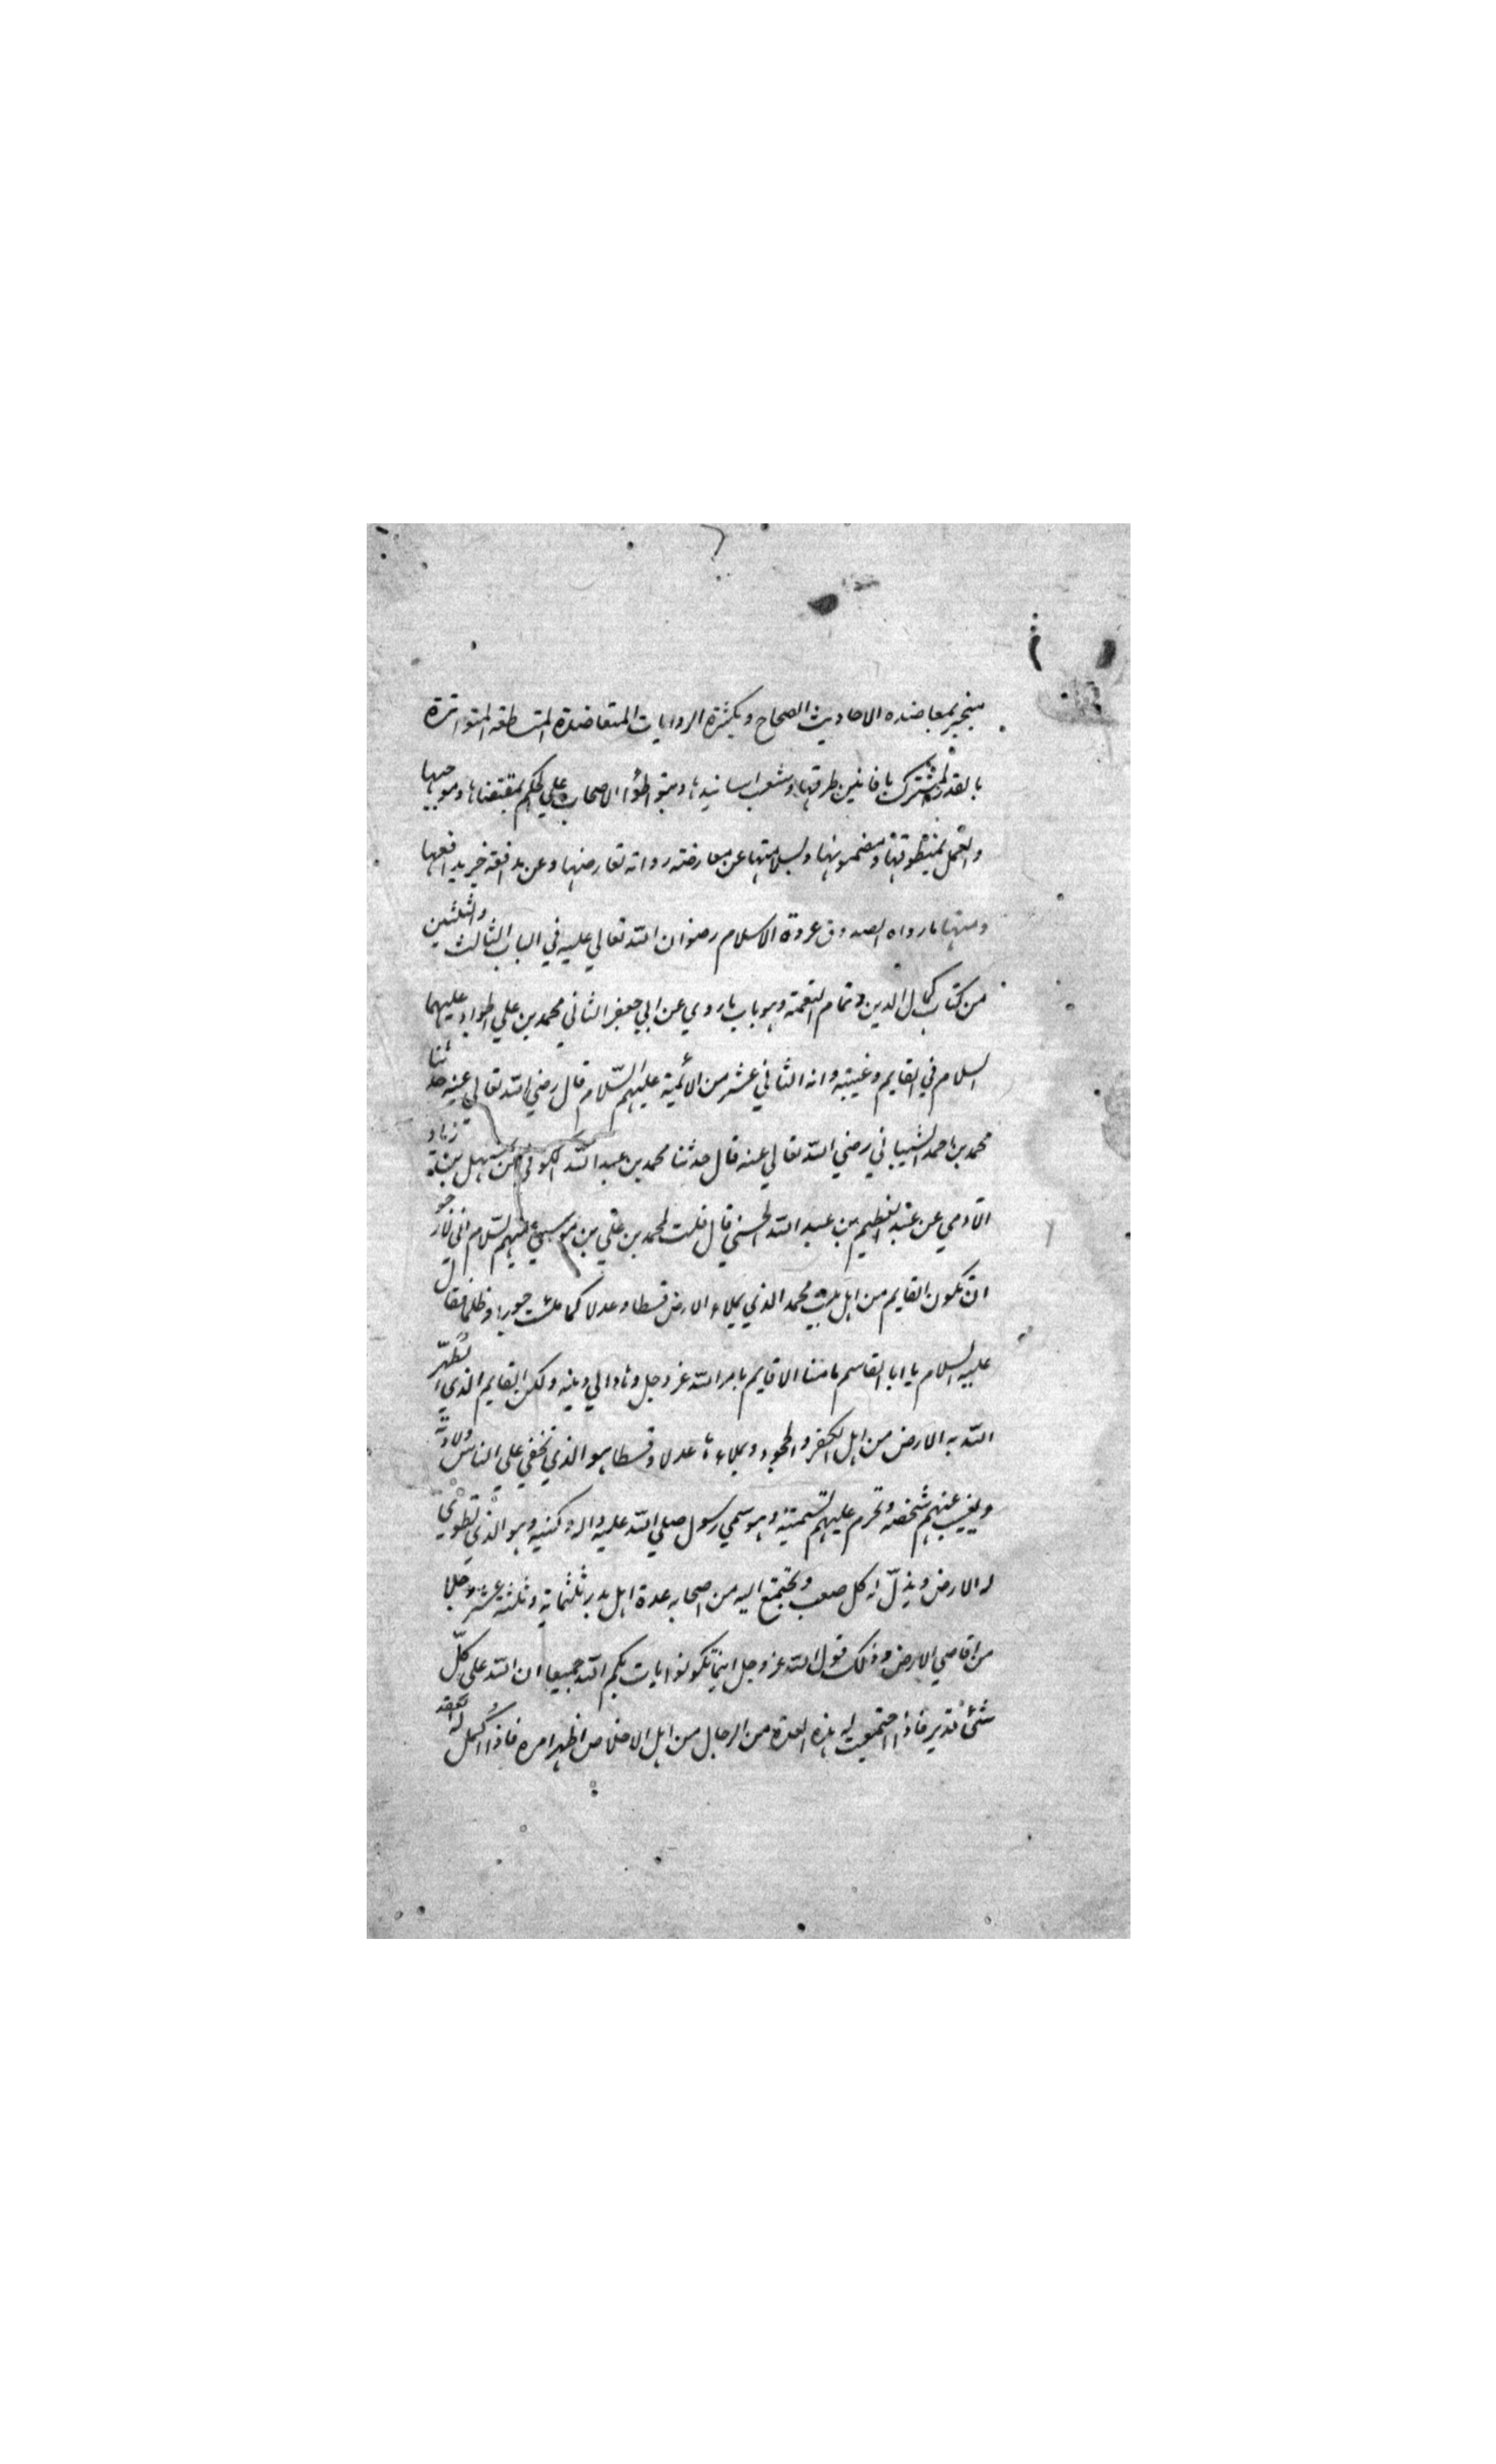 ينجبر بمعاضده الاحاديث الصحاح و بكثرة الروايات المتعاضدة المتواترة
بالقدر المشترك بافانين طرقها و شعب اسانيدها و بتواطؤ الاصحاب علي الحكم بمقتضاها و موجبها
والعمل بمنطوقها و مضمونها و بسلامتها عن معارضته رواته تعارضها و عن مدافعة خبر يدافعها
ومنها ما رواه الصدوق عروة الاسلام رضوان الله تعالي عليه في الباب الثالث والثلثين
من كتاب كمال الدين و تمام النعمة و هو باب ما روي عن ابي جعفر الثاني محمد بن علي الجواد عليهما
السلام في القايم و غيبته و انه الثاني عشر من الأئمة عليهم السّلام قال رضي الله تعالي عنه حدثنا
محمد بن احمد الشيباني رضي الله تعالي عنه قال حدثنا محمد بن عبد الله الكوفي عن سهل بن زياد
الآدمي عن عبد العظيم بن عبد الله الحسني قال قلت لمحمد بن علي بن موسي عليهم السّلام اني لأرجو
ان تكون القايم من اهل بيت محمد الذي يملاء الارض قسطا و عدلا كما ملئت جورا و ظلما فقال
عليه السلام يا ابا القاسم ما منا الا قايم بامر الله عز و جل و هاد الي دينه ولكن القايم الذي يُطهّر
الله به الارض من اهل الكفر و الجحود و يملاءها عدلا و قسطا هو الذي تخفي علي الناس ولادته
و يغيب عنهم شخصه و تحرم عليهم تسميته و هو سمي رسول صلي الله عليه و اله و كنيه و هو الذي تطوي
له الارض و يذلّ له كل صعب و يجتمع اليه من اصحابه عدة اهل بدر ثلثمائة و ثلثة عشر رجلا
من اقاصي الارض و ذلك قول الله عز و جل اينما تكونوا يات بكم الله جميعا ان الله علي كلّ
شئ قدير فاذا اجتمعت له هذه العدة من الرجال من اهل الاخلاص اظهر امره فاذا اكمل له العقد